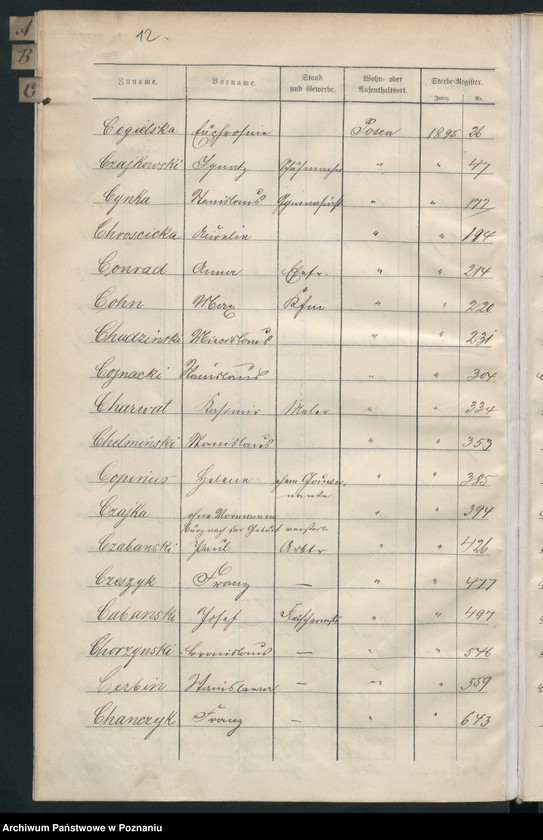 12.
A
B
C
Zuname. Vorname. Stand und Gewerbe. Wohn- oder Aufenthaltsort. Sterbe-Register.
Jahrg. Nr.
Cegielska Euphrosine Posen 1895 26
Czajkowski Ignatz Schuhmacher " " 47
Cynka Stanislaus Gymnasiast " " 177
Chroscicka Aurelie " " 184
Conrad Anna Ehefr. " " 214
Cohn Max Kfm " " 220
Chudzinski Miecislaus " " 231
Cojnacki Stanislaus " " 304
Charwat Kasimir Maler " " 334
Chelmiński Stanislaus " " 353
Copinus Helene ehem Gouver-
nante " " 385
Czajka ohne Vornamen " " 394
kurz nach der Geburt verstorb.
Czabanski Paul Arbtr " " 426
Czeszyk Franz — " " 477
Cabanski Josef " " 497
Chorzynski Bronislaus — " " 546
Cerbin Stanislawa — " " 559
Chanczyk Franz — " " 643
Archiwum Państwowe w Poznaniu